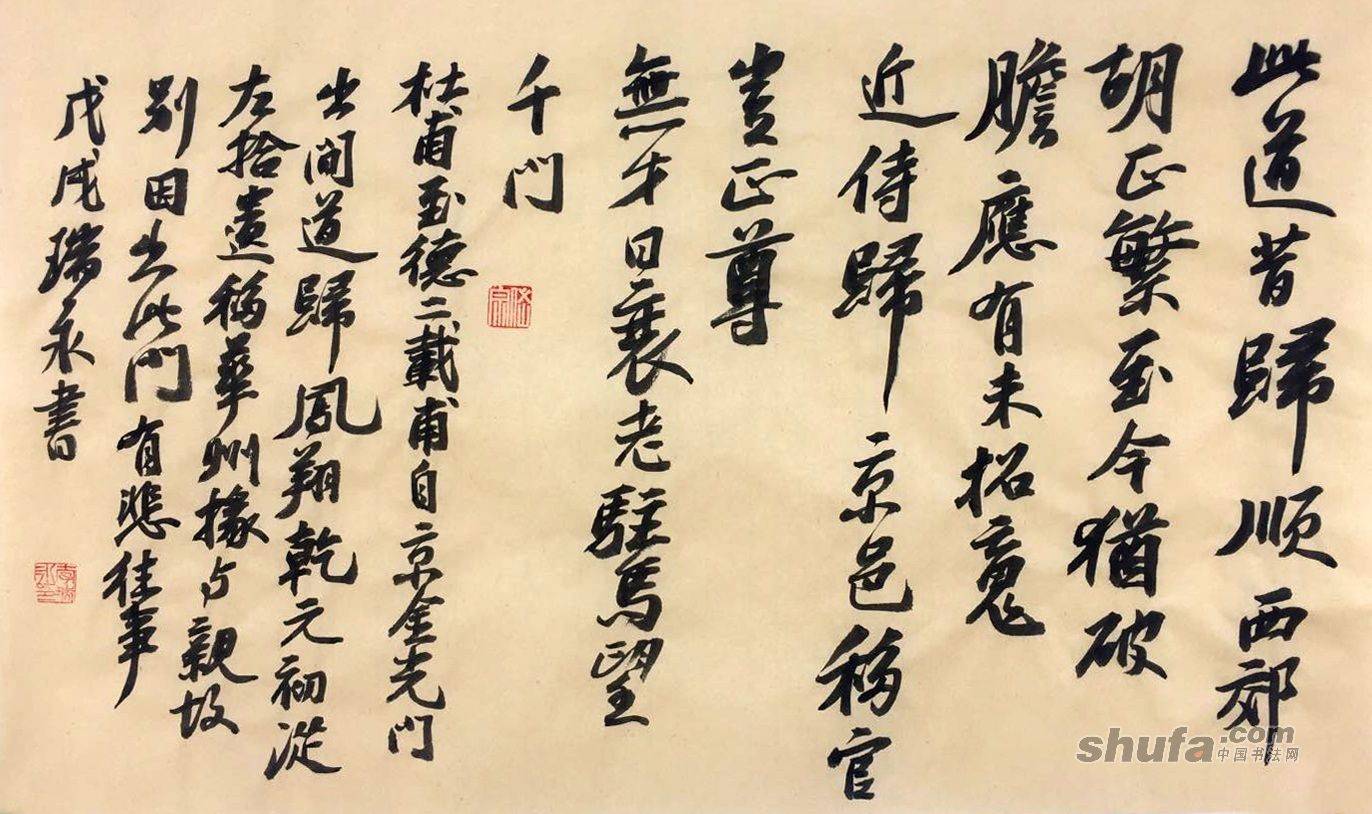 此道昔歸順西郊
胡正繁至今猶破
膽應有未招魂
近侍歸京邑移官
豈正尊
無才日衰老駐馬望
千門
杜甫至德二載甫自京金光門
出間道歸鳳翔乾元初從
左拾遺移華州掾与親故
別因出此門有悲往事
戊戌瑞永書
shufa.com
中国书法网